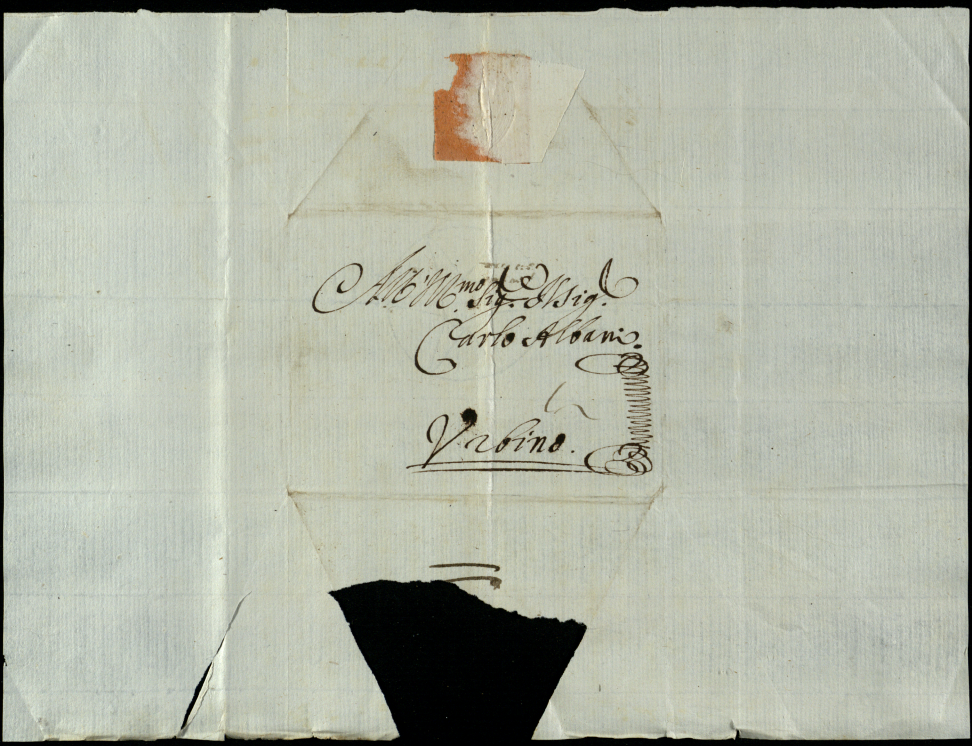 All'Ill.mo Sig. Il Sig.
Carlo Albani.
Urbino.